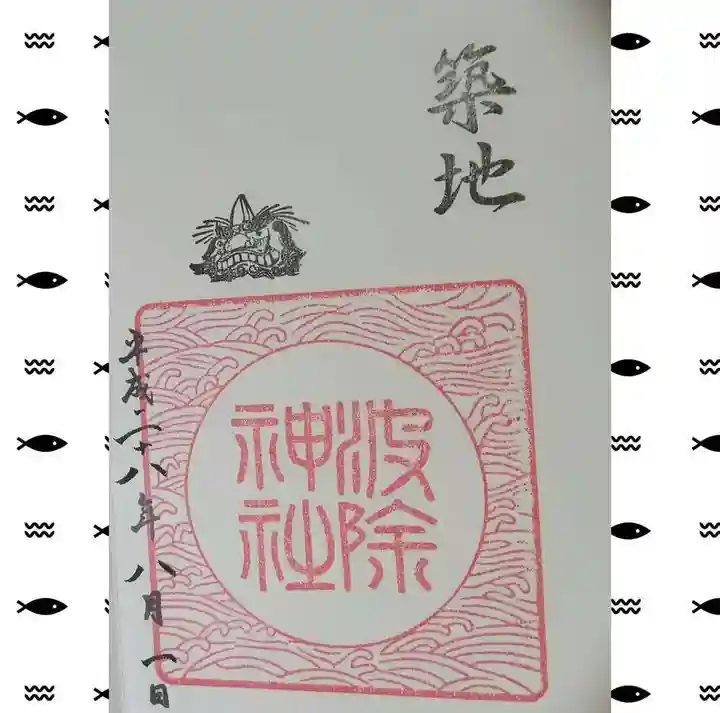 築地
波除
神社
平成二十八年八月一日